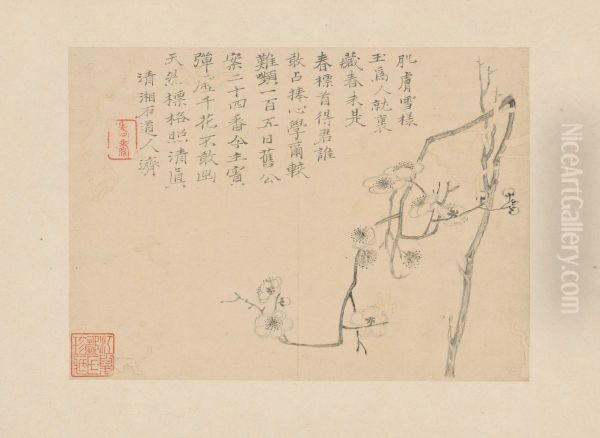 肌膚雪樣
玉為人就裏
藏春未是
春標首得君誰
敢占捧心學蕭較
難嚬一百五日舊公
案二十四番今主賓
彈壓千花不敢凶
天然標格照清真
清湘石道人濟
NiceArtGallery.com